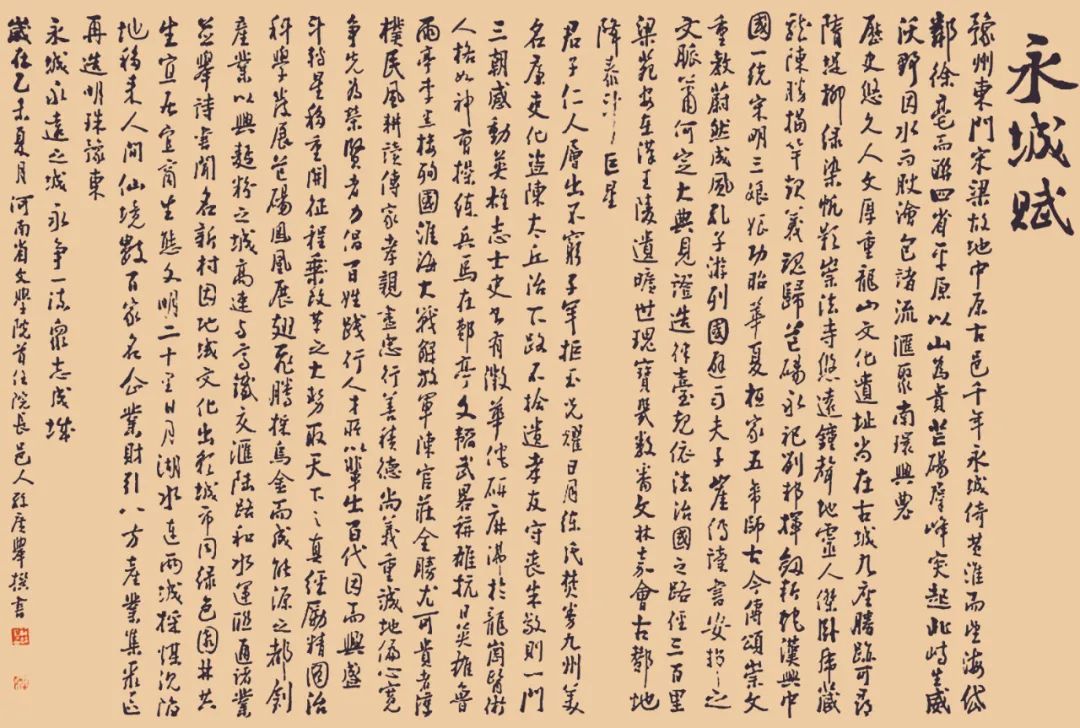 永城賦
豫州東門宋梁故地中原古邑千年永城倚黄淮而望海岱
鄰徐亳而聯四省平原以山為貴芒碭群峰突起北峙生威
沃野因水而腴澮包諸流滙聚南環興農
歷史悠久人文厚重龍山文化遺址尚在古城九座勝跡可尋
隋堤柳緑染帆影崇法寺悠遠鐘聲地靈人傑卧虎藏
龍陳勝揭竿起義魂歸芒碭永祀劉邦揮劍斬蛇漢興中
國一統宋明三娘娘功昭華夏桓家五帝師古今傳頌崇文
重教蔚然成風孔子游列國避雨夫子崖讀書之
文脈蕭何定大典見證造律臺起依法治國之路徑三百里
梁苑安在漢王陵遺曠世瑰寶幾數番文林嘉會古酇地
降泰斗巨星
君子仁人層出不窮子罕拒玉光耀日月徐氏焚券九州美
名廉吏化盗陳太丘治下路不拾遺孝友守喪朱敬則一門
三朝感動英雄志士史書有徵華佗研麻沸於龍崗醫術
人格如神曹操練兵馬在酇亭文韜武略稱雄抗日英雄魯
雨亭李接殉國淮海大戰解放軍陳官莊全勝尤可貴者淳
樸民風耕讀傳家孝親盡忠行善積德尚義重誠地偏心寬
争先為榮賢者力倡百姓踐行人才所以輩出百代因而興盛
斗轉星移重開征程乘改革之大勢取天下之真經勵精圖治
科學發展芒碭鳳凰展翅飛騰採烏金而成能源之都創
産業以興麵粉之城高速与高鐵交滙陸路和水運聯通諸業
並舉詩書聞名新村因地域文化出程城市同緑色園林共
生宜居宜商生態文明二十里日月湖水连两城採煤沉陷
地移来人間仙境數百家名企業財引八方産業集聚區
再造明珠豫東
永城永遠之城永争一流衆志成城
歲在乙未夏月河南省文學院首任院長邑人孫廣舉撰書